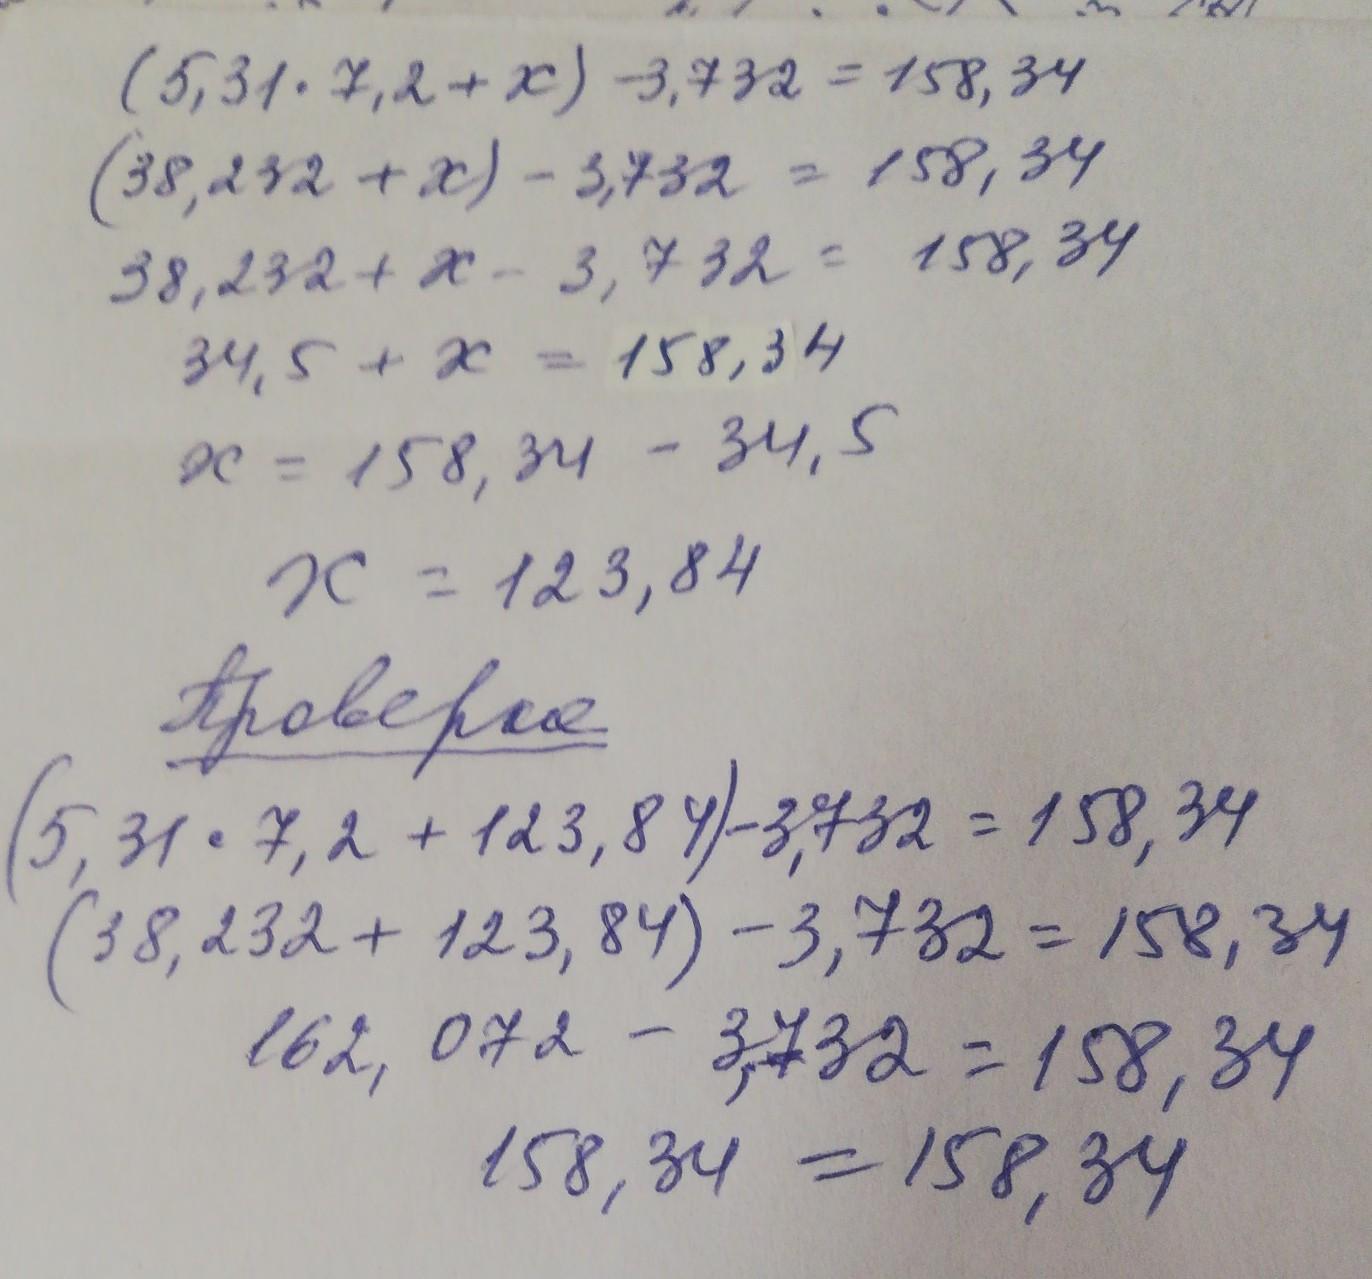 (5,31·7,2+x)-3,732=158,34
(38,232+x)-3,732=158,34
38,232+x-3,732=158,34
34,5+x=158,34
x=158,34-34,5
x=123,84
Проверка
(5,31·7,2+123,84)-3,732=158,34
(38,232+123,84)-3,732=158,34
162,072-3,732=158,34
158,34=158,34